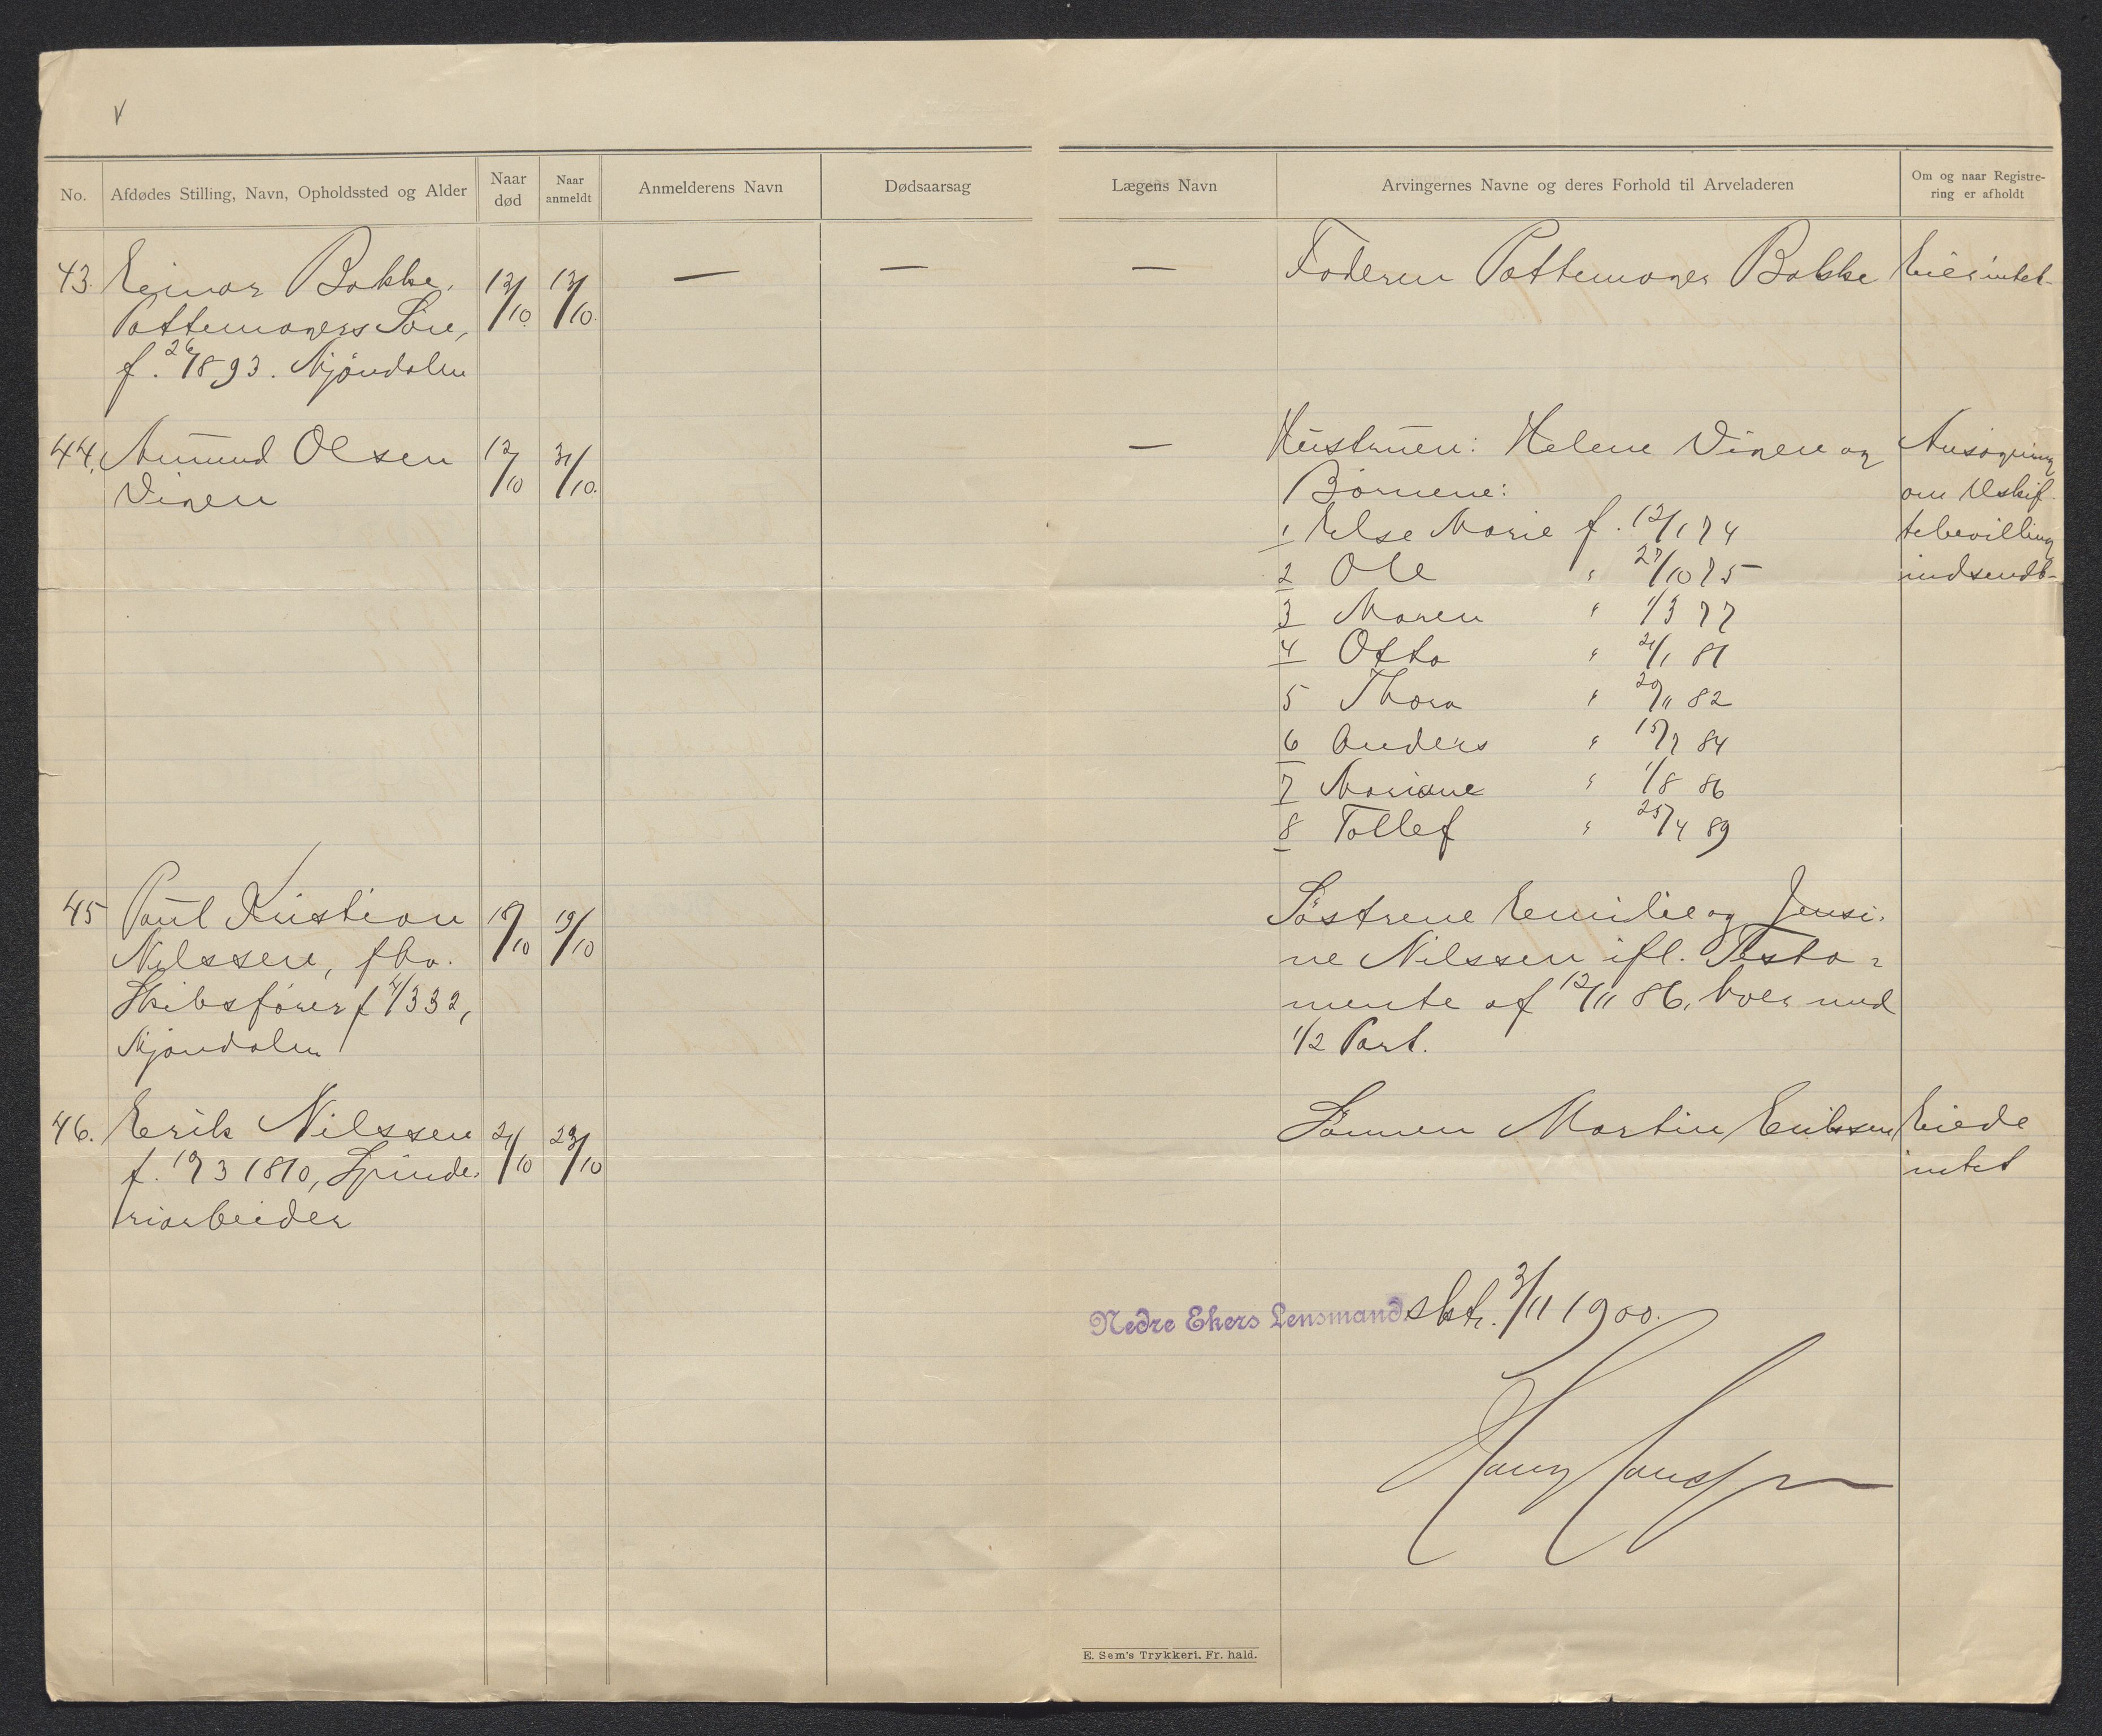 V
No. Afdødes Stilling, Navn, Opholdssted og Alder Naar død Naar anmeldt Anmelderens Navn Dødsaarsag Lægens Navn Arvingernes Navne og deres Forhold til Arveladeren Om og naar Registrering er afholdt
43. Einar Bakke, 13/10 13/10. — — — Faderen Pottemager Bakke Eier intet
Pottemagers Søn,
f. 26/ 1893. Mjøndalen
44. Amund Olsen 12/10 31/10. — Hustruen: Helene Vigen og Ansøgning
Vigen Børnene: om Uskif
1 Else Marie f. 12/1 74 tebevilling
2 Ole " 27/10 75 indsendt
3 Maren " 1/3 77
4 Otto " 21/1 81
5 Thora " 29/11 82
6 Anders " 15/7 84
7 Mariane " 1/8 86
8 Tollef " 25/4 89
45 Paul Kristian 18/10 19/10 Søstrene Emilie og Jensi-
Nilssen, fhv. ne Nilssen ifl. Testa-
Skibsfører f 4/3 32, mente af 12/11 86, hver med
Mjøndalen 1/2 Part.
46. Erik Nilssen 21/10 23/10 Sønnen Martin Erikssen Eiede
f. 19/3 1810, Spinde- intet
riarbeider
Nedre Ekers Lensmandsktr. 3/11 1900.
E. Sem's Trykkeri, Fr. hald.